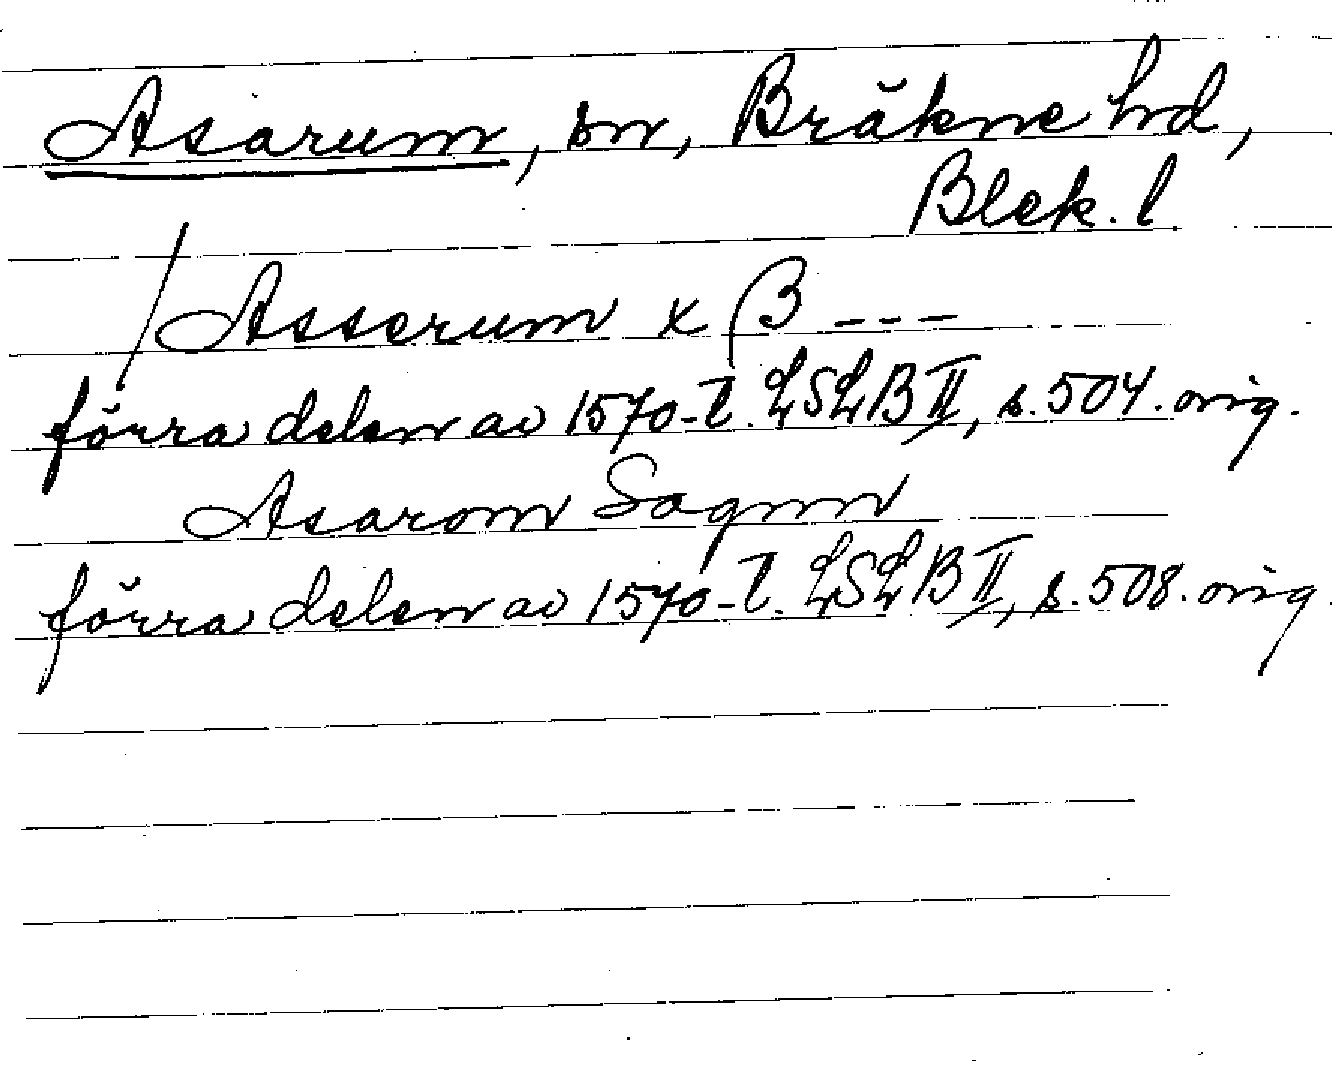 Asarum, sn, Bräkne hd,
Blek. l.
Asserum x B ---
förra delen av 1570-t. LSLB II, s. 504. orig.
Asarom Sognn
förra delen av 1570-t. LSLB II, s. 508. orig.